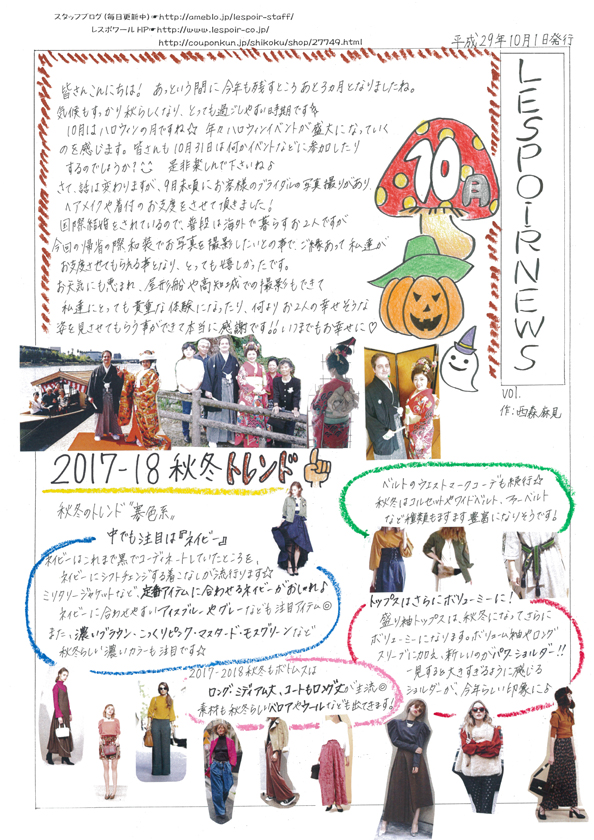 スタッフブログ(毎日更新中)☛http://ameblo.jp/lespoir-staff/
レスポワールHP☛http://www.lespoir-co.jp/
http://couponkun.jp/shikoku/shop/27749.html
平成29年10月1日発行
LESPOIR NEWS
vol.
作:西森麻見
皆さんこんにちは! あっという間に今年も残すところあと3ヵ月となりましたね。
気候もすっかり秋らしくなり、とっても過ごしやすい時期です
10月はハロウィンの月ですね☆ 年々ハロウィンイベントが盛大になっていく
のを感じます。皆さんも10月31日は何かイベントなどに参加したり
するのでしょうか? 是非楽しんで下さいね♪
さて、話は変わりますが、9月末頃にお客様のブライダルの写真撮りがあり、
ヘアメイクや着付のお支度をさせて頂きました!
国際結婚をされているので、普段は海外で暮らすお2人ですが
今回の帰省の際和装でお写真を撮影したいとの事で、ご縁あって私達が
お支度させてもらえる事となり、とっても嬉しかったです。
お天気にも恵まれ、屋形船や高知城での撮影もできて
私達にとっても貴重な体験になったり、何よりお2人の幸せそうな
姿を見させてもらう事ができて本当に感謝です!! いつまでもお幸せに♡
10月
2017-18 秋冬トレンド
秋冬のトレンド"寒色系"
中でも注目は『ネイビー』
ネイビーはこれまで黒でコーディネートしていたところを、
ネイビーにシフトチェンジする着こなしが流行ります☆
ミリタリージャケットなど、定番アイテムに合わせるネイビーがおしゃれ♪
ネイビーに合わせやすいアイスブルーやグレーなども注目アイテム◎
また、濃いブラウン・こっくりピンク・マスタード・モスグリーンなど
秋冬らしい濃いカラーも注目です☆
ベルトのウエストマークコーデも流行☆
秋冬はコルセットやワイドベルト、ファーベルト
など種類もますます豊富になりそうです!
トップスはさらにボリューミーに!
盛り袖トップスは、秋冬になってさらに
ボリューミーになります。ボリューム袖やロング
スリーブに加え、新しいのがパワーショルダー!!
一見すると大きすぎるように感じる
ショルダーが、今年らしい印象に♪
2017-2018秋冬もボトムスは
ロング・ミディアム丈、コートもロング丈が主流◎
素材も秋冬らしいベロアやウールなども出てきます!